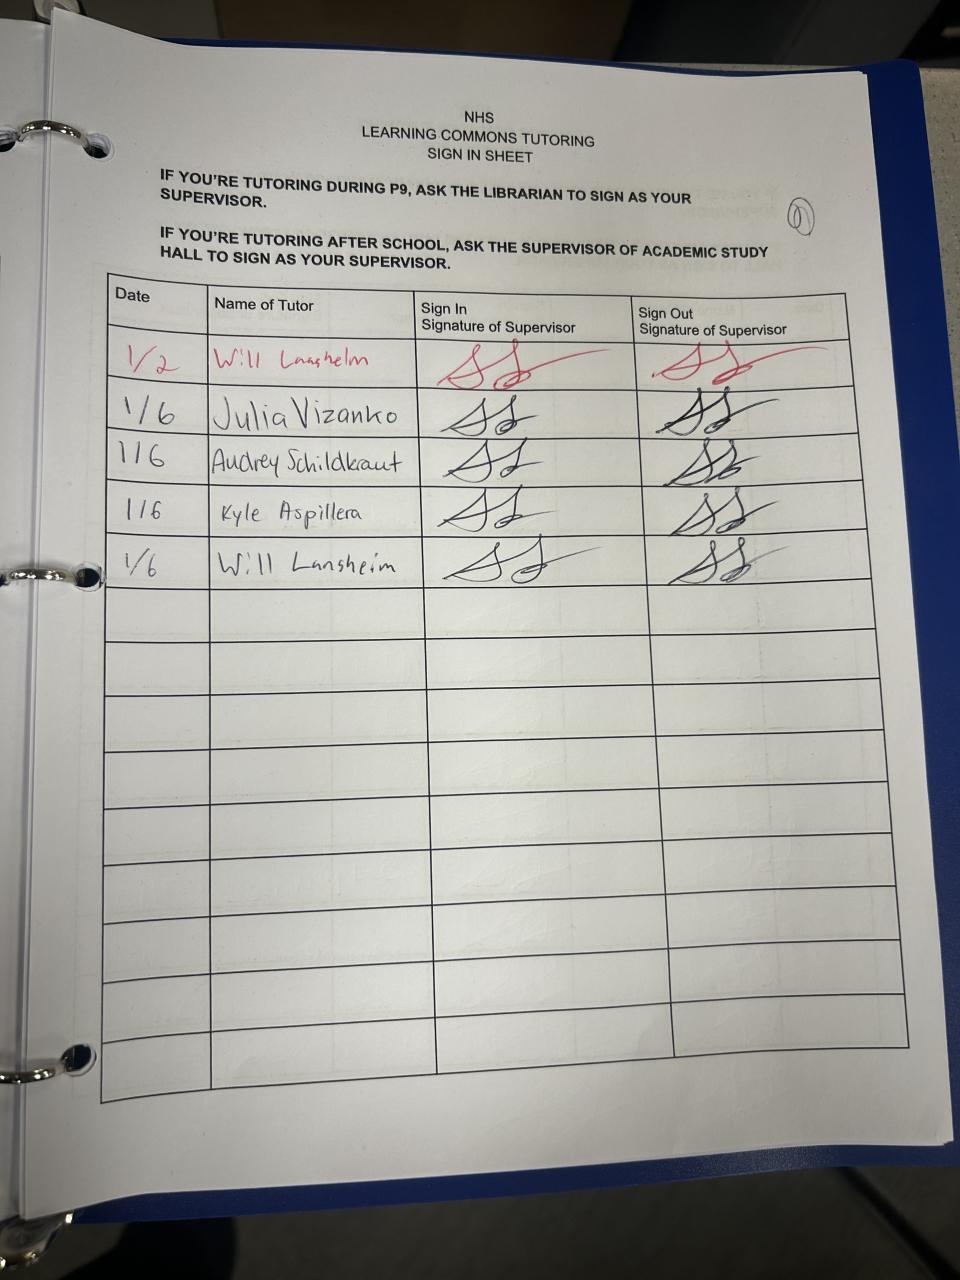 NHS
LEARNING COMMONS TUTORING
SIGN IN SHEET
IF YOU'RE TUTORING DURING P9, ASK THE LIBRARIAN TO SIGN AS YOUR
SUPERVISOR.
IF YOU'RE TUTORING AFTER SCHOOL, ASK THE SUPERVISOR OF ACADEMIC STUDY
HALL TO SIGN AS YOUR SUPERVISOR.
Date Name of Tutor Sign In Sign Out
Signature of Supervisor Signature of Supervisor
1/2 Will
1/6 Julia Vizanko
1/6 Audrey Schildkraut
1/6 Kyle Aspillera
1/6 Will Lansheim